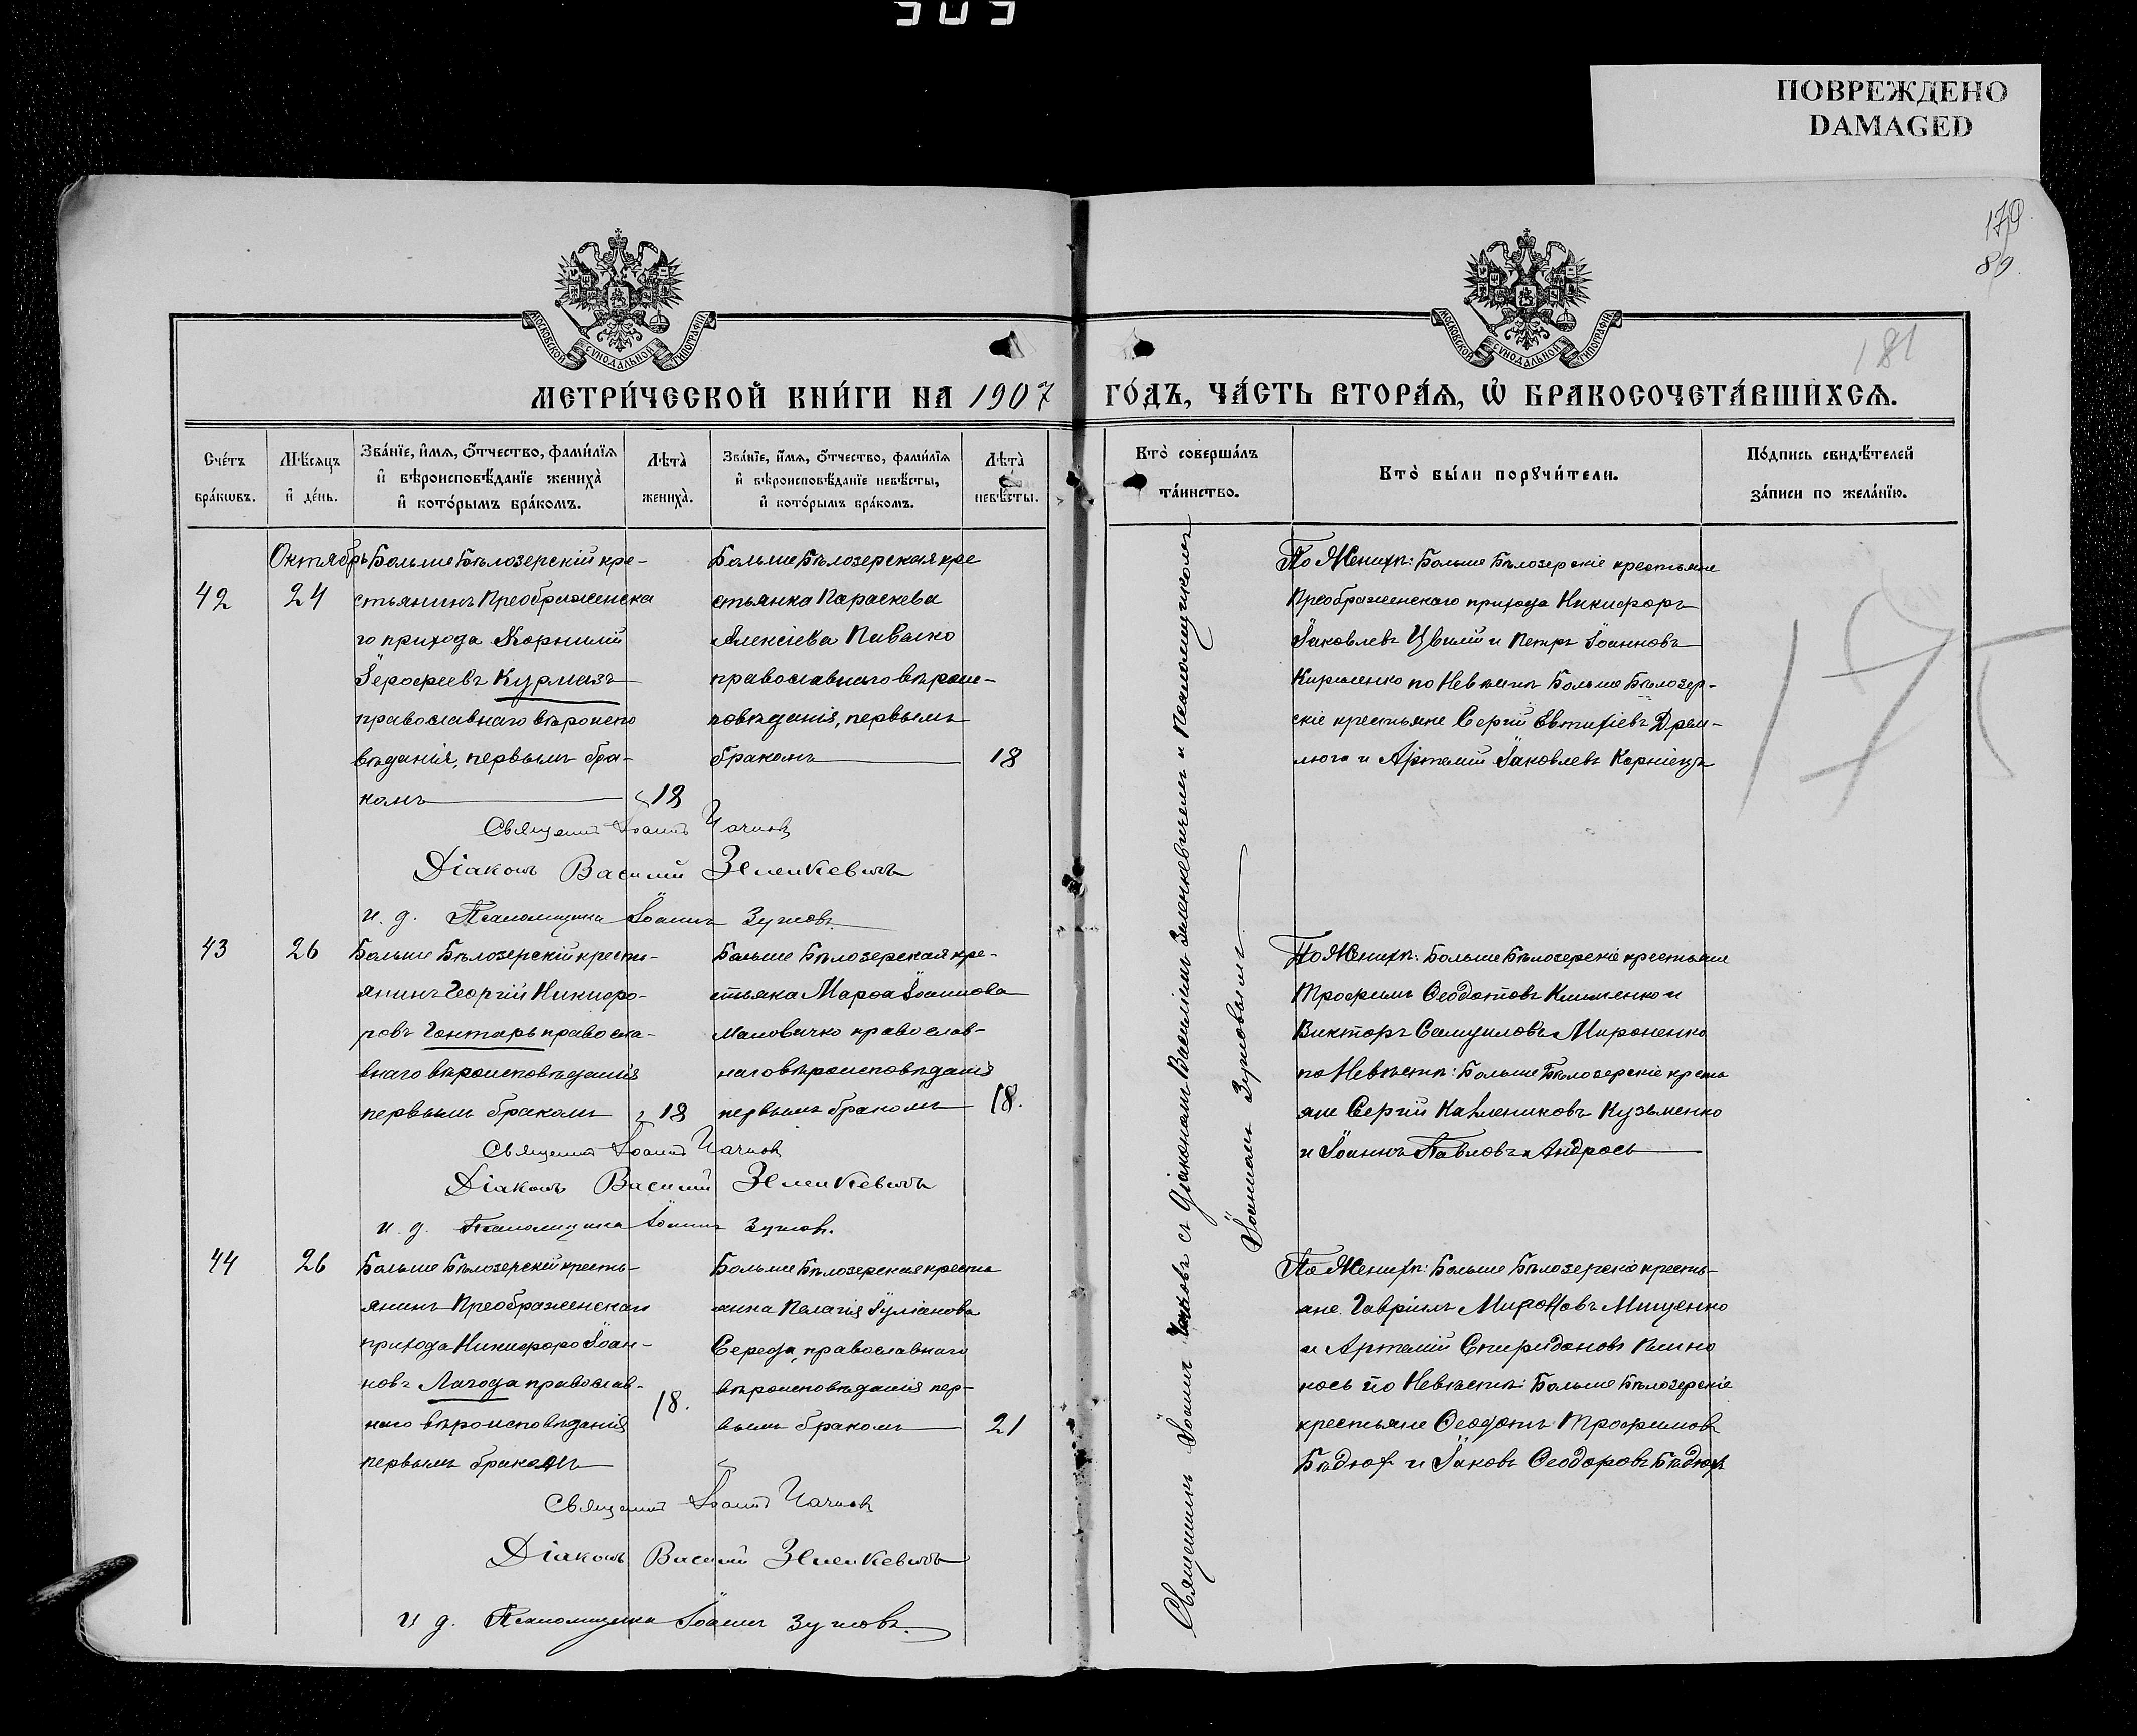 ПОВРЕЖДЕНО
DAMAGED
179
89.
181
МОСКОВСКОЙ СѴНОДАЛЬНОЙ ТИПОГРАФІИ
МОСКОВСКОЙ СѴНОДАЛЬНОЙ ТИПОГРАФІИ
МЕТРИ́ЧЕСКОЙ КНИ́ГИ НА 1907 ГО́ДЪ, ЧА́СТЬ ВТОРА́Ѧ, Ѽ БРАКОСОЧЕТА́ВШИХСѦ.
Сче́тъ бра́кωвъ.
Мѣ́сяцъ и҆ де́нь.
Зва́нїе, и҆́мѧ, ѻ҆́тчество, фами́лїѧ
и҆ вѣроисповѣ́данїе жениха̀
и҆ кото́рымъ бра́комъ.
Лѣта̀ жениха̀.
Зва́нїе, и҆́мѧ, ѻ҆́тчество, фами́лїѧ
и҆ вѣроисповѣ́данїе невѣ́сты,
и҆ кото́рымъ бра́комъ.
Лѣта̀ невѣ́сты.
Кто̀ соверша́лъ та́инство.
Кто̀ бы́ли порꙋчи́тели.
По́дпись свидѣ́телей
за́писи по жела́нїю.
Октябрь
42
24
Больше Бѣлозерскій кре-
стьянинъ Преображенска
го прихода Корнилій
Іерофеевъ Курмазъ
православнаго вѣроиспо
вѣданія, первымъ бра-
комъ
18
Больше Бѣлозерская кре
стьянка Параскева
Алексіева Пивалко
православнаго вѣроис-
повѣданія, первымъ
бракомъ
18
По Женихѣ: Больше Бѣлозерскіе крестьяне
Преображенскаго прихода Никифоръ
Іаковлевъ Цвилій и Петръ Іоанновъ
Кириленко по Невѣстѣ Больше Бѣлозер-
скіе крестьяне Сергій Евтихіевъ Дрем-
люга и Артемій Іаковлевъ Корніецъ
Священникъ Іоаннъ
Діаконъ Василій Зеленкевичъ
и. д. Псаломщика Іоаннъ Зуховъ.
43
26
Больше Бѣлозерскій крест-
янинъ Георгій Никифо-
ровъ Гонтарь правосла-
внаго вѣроисповѣданія
первымъ бракомъ
18
Больше Бѣлозерская кре-
стьяка Марѳа Іоаннова
Маловичко православ-
наго вѣроисповѣданія
первымъ бракомъ
18.
По Женихѣ: Больше Бѣлозерскіе крестьяне
Трофимъ Ѳеодотовъ Клименко и
Викторъ Самуиловъ Мироненко
по Невѣстѣ: Больше Бѣлозерскіе кресть
яне Сергій Каллениковъ Кузьменко
и Іоаннъ Павловъ Андросъ
Священникъ Іоаннъ
Діаконъ Василій Зеленкевичъ
и. д. Псаломщика Іоаннъ Зуховъ.
44
26
Больше Бѣлозерскій кресть-
янинъ Преображенскаго
прихода Никифоръ Іоан-
новъ Лагода православ-
наго вѣроисповѣданія
первымъ бракомъ
18.
Больше Бѣлозерская кресть
янка Пелагія Іуліанова
Середа, православнаго
вѣроисповѣданія пер-
вымъ бракомъ
21
По Женихѣ: Больше Бѣлозерскіе кресть-
яне Гавріилъ Мироновъ Мищенко
и Артемій Спиридоновъ
по Невѣстѣ: Больше Бѣлозерскіе
крестьяне Ѳеодотъ Трофимовъ
Бѣдюхъ и Іаковъ Ѳеодоровъ Бѣдюхъ
Священникъ Іоаннъ
Діаконъ Василій Зеленкевичъ
и д. Псаломщика Іоаннъ Зуховъ.
Священникъ Іоаннъ съ Діакономъ Василіемъ Зеленкевичемъ и Псаломщикомъ
Іоанномъ Зуховымъ